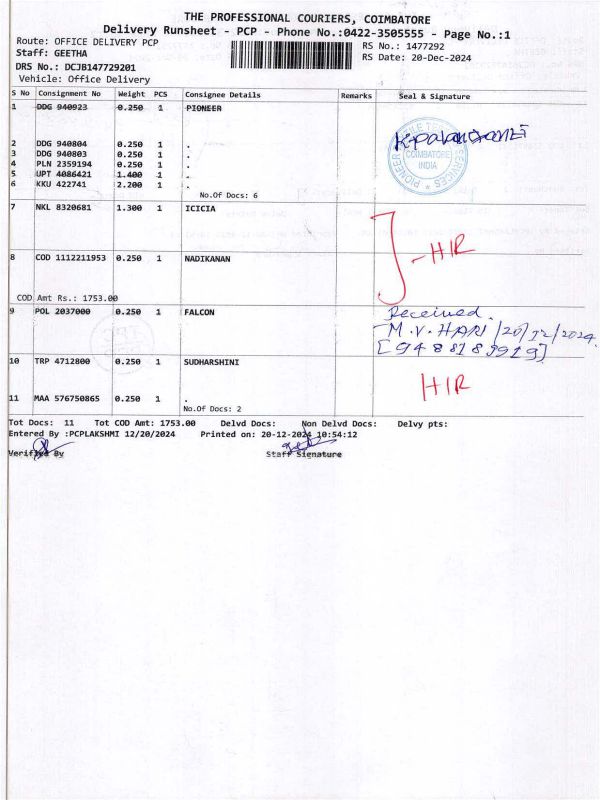 THE PROFESSIONAL COURIERS, COIMBATORE
Delivery Runsheet - PCP - Phone No.:0422-3505555 - Page No.:1
Route: OFFICE DELIVERY PCP RS No.: 1477292
Staff: GEETHA RS Date: 20-Dec-2024
DRS No.: DCJB147729201
Vehicle: Office Delivery
S No Consignment No Weight PCS Consignee Details Remarks Seal & Signature
1 DDG 940923 0.250 1 PIONEER
2 DDG 940804 0.250 1 .
3 DDG 940803 0.250 1 .
4 PLN 2359194 0.250 1 .
5 UPT 4086421 1.400 1 .
6 KKU 422741 2.200 1 .
No.Of Docs: 6
PIONEER
SERVICES
COIMBATORE
INDIA
7 NKL 8320681 1.300 1 ICICIA
- HIR
8 COD 1112211953 0.250 1 NADIKANAN
COD Amt Rs.: 1753.00
9 POL 2037000 0.250 1 FALCON
Received.
M.V. HARI /20/12/2024.
[9488183919]
10 TRP 4712800 0.250 1 SUDHARSHINI
HIR
11 MAA 576750865 0.250 1 .
No.Of Docs: 2
Tot Docs: 11 Tot COD Amt: 1753.00 Delvd Docs: Non Delvd Docs: Delvy pts:
Entered By :PCPLAKSHMI 12/20/2024 Printed on: 20-12-2024 10:54:12
Verified By Staff Signature